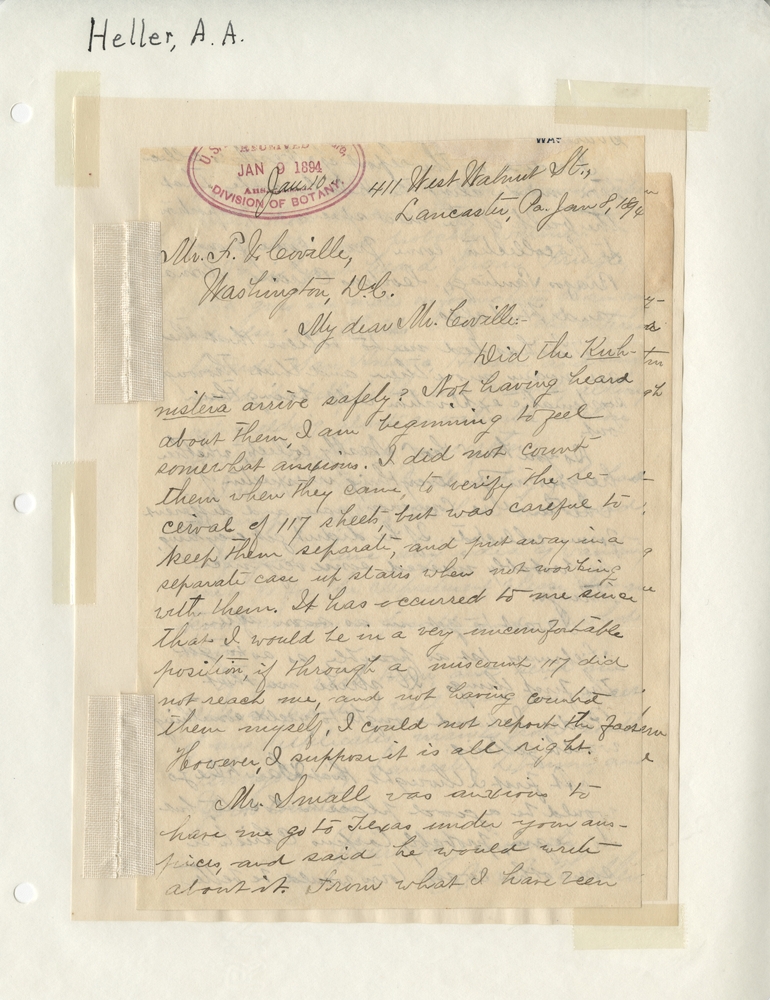 Heller, A. A.
RECEIVED
JAN 9 1894
Ans. Jan. 10.
DIVISION OF BOTANY.
411 West Walnut St.,
Lancaster, Pa. Jan 8, 1894
Mr. F. V. Coville,
Washington, D.C.
My dear Mr. Coville:-
Did the Kuh-
nistera arrive safely? Not having heard
about them, I am beginning to feel
somewhat anxious. I did not count
them when they came, to verify the re-
ceival of 117 sheets, but was careful to
keep them separate, and put away in a
separate case up stairs when not working
with them. It has occurred to me since
that I would be in a very uncomfortable
position, if through a miscount 117 did
not reach me, and not having counted
them myself, I could not report the
However, I suppose it is all right.
Mr. Small was anxious to
have me go to Texas under your aus-
pices, and said he would write
about it. From what I have seen